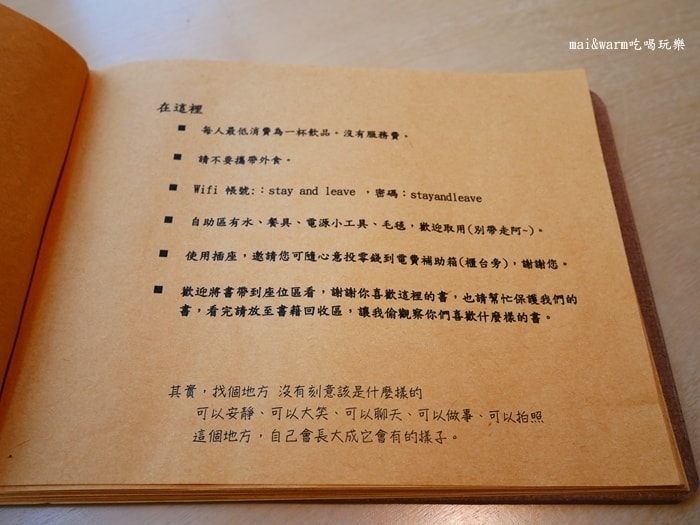 mai&warm吃喝玩樂
在這裡
■ 每人最低消費為一杯飲品。沒有服務費。
■ 請不要攜帶外食。
■ Wifi 帳號:：stay and leave ，密碼：stayandleave
■ 自助區有水、餐具、電源小工具、毛毯，歡迎取用(別帶走阿~)。
■ 使用插座，邀請您可隨心意投零錢到電費補助箱(櫃台旁)，謝謝您。
■ 歡迎將書帶到座位區看，謝謝你喜歡這裡的書，也請幫忙保護我們的
書，看完請放至書籍回收區，讓我偷觀察你們喜歡什麼樣的書。
其實，找個地方 沒有刻意該是什麼樣的
可以安靜、可以大笑、可以聊天、可以做事、可以拍照
這個地方，自己會長大成它會有的樣子。